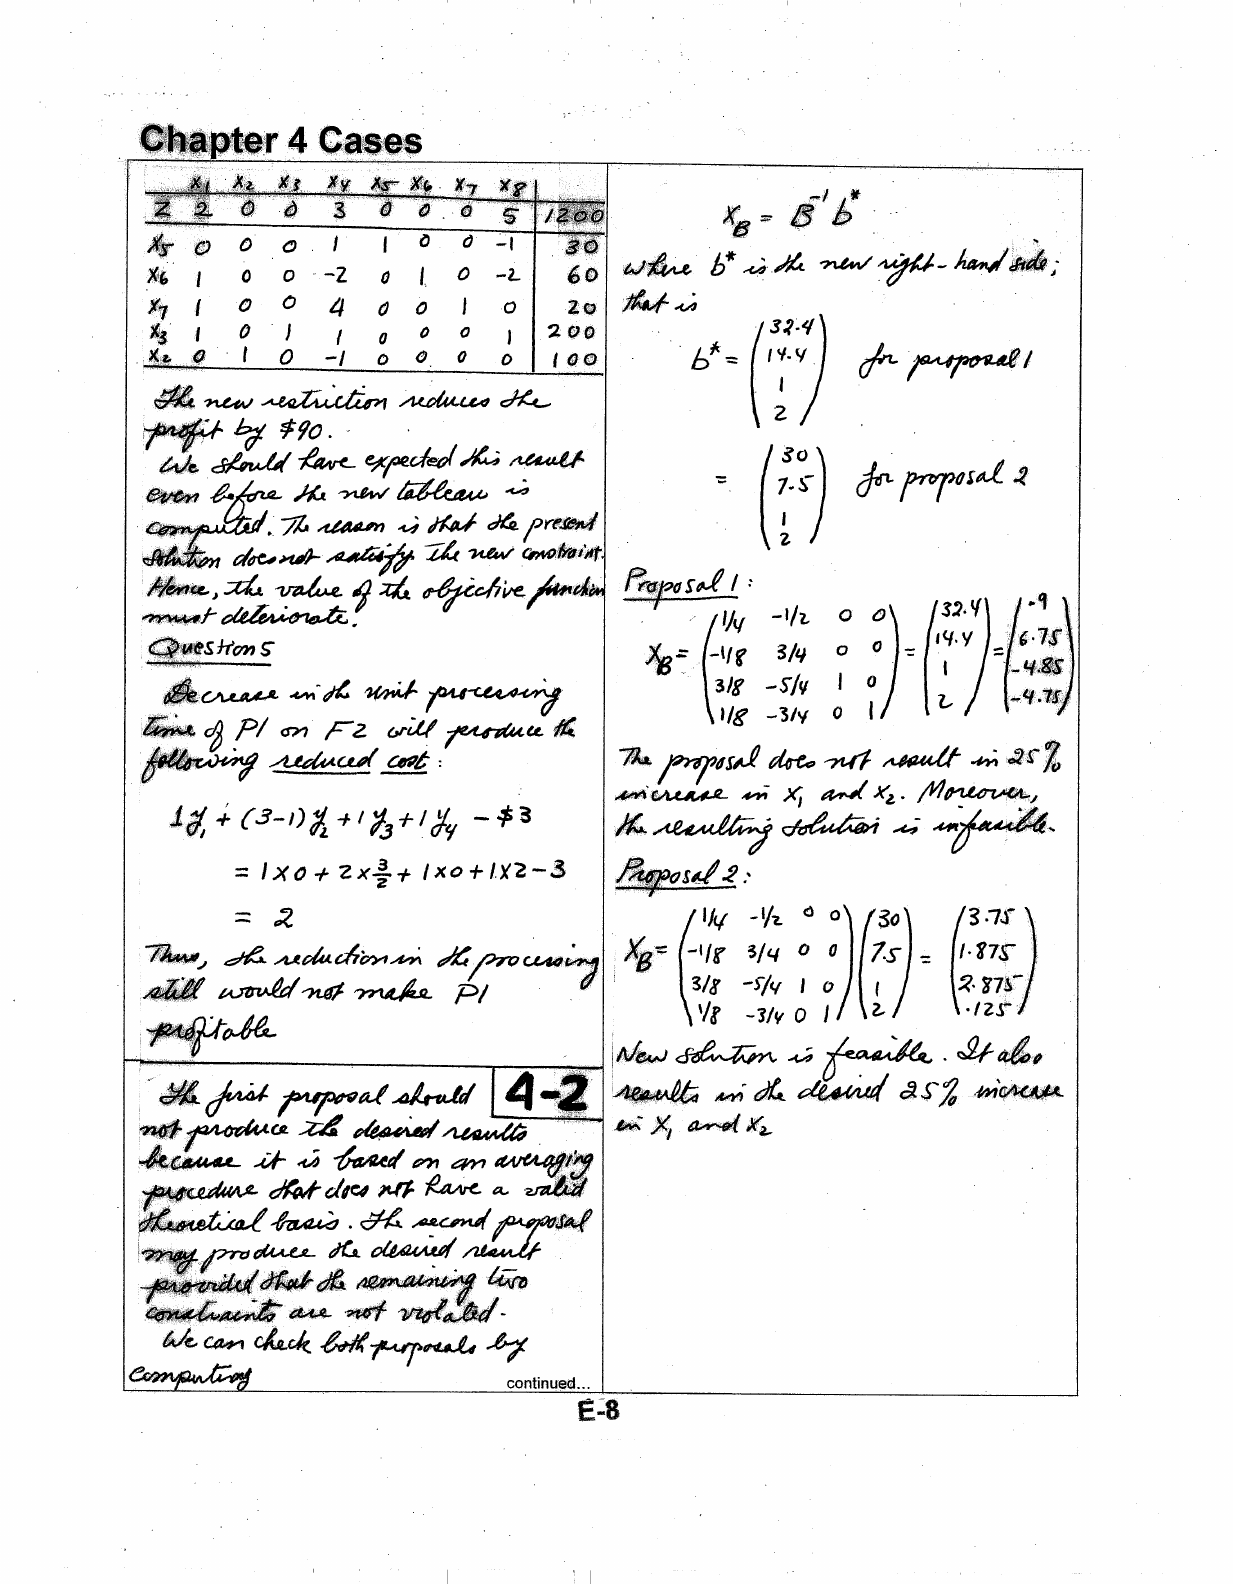 Chapter 4 Cases
x1 x2 x3 x4 x5 x6 x7 x8
Z 2 0 0 3 0 0 0 5 1200
x5 0 0 0 1 1 0 0 -1 30
x6 1 0 0 -2 0 1 0 -2 60
x7 1 0 0 4 0 0 1 0 20
x3 1 0 1 1 0 0 0 1 200
x2 0 1 0 -1 0 0 0 0 100
The new restriction reduces the
profit by $90.
We should have expected this result
even before the new tableau is
computed. The reason is that the present
solution does not satisfy the new constraint.
Hence, the value of the objective function
must deteriorate.
Question 5
Decrease in the unit processing
time of P1 on F2 will produce the
following reduced cost :
1y1 + (3-1)y2 + 1y3 + 1y4 - $3
= 1x0 + 2x3/2 + 1x0 + 1x2 - 3
= 2
Thus, the reduction in the processing
still would not make P1
profitable
4-2
The first proposal should
not produce the desired results
because it is based on an averaging
procedure that does not have a valid
theoretical basis. The second proposal
may produce the desired result
provided that the remaining two
constraints are not violated.
We can check both proposals by
computing
continued...
XB = B^-1 b*
where b* is the new right-hand side;
that is
b* = (32.4 14.4 1 2) for proposal 1
= (30 7.5 1 2) for proposal 2
Proposal 1 :
XB = (1/4 -1/2 0 0
-1/8 3/4 0 0
3/8 -5/4 1 0
1/8 -3/4 0 1) = (32.4 14.4 1 2) = (.9 6.75 -4.85 -4.75)
The proposal does not result in 25%
increase in X1 and X2. Moreover,
the resulting solution is infeasible.
Proposal 2 :
XB = (1/4 -1/2 0 0
-1/8 3/4 0 0
3/8 -5/4 1 0
1/8 -3/4 0 1) (30 7.5 1 2) = (3.75 1.875 2.875 .125)
New solution is feasible. It also
results in the desired 25% increase
in X1 and X2
E-8